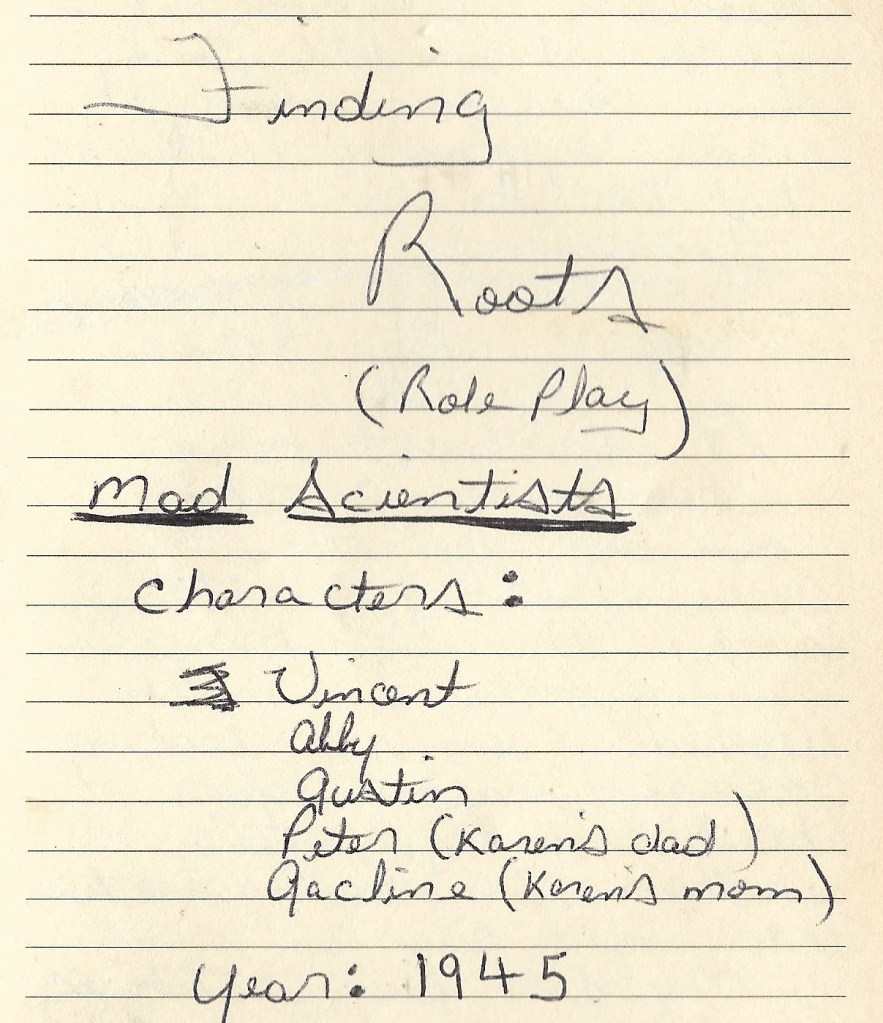 Finding
Roots
(Role Play)
Mad Scientists
Characters:
Vincent
Abby
Justin
Peter (Karen's dad)
Jacline (Karen's mom)
Year: 1945